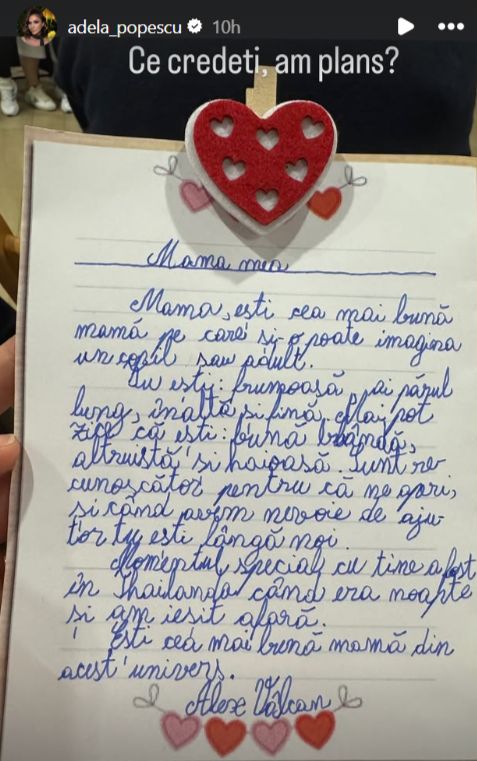 adela_popescu 10h
Ce credeti, am plans?
Mama mea
Mama, esti cea mai bună
mamă pe care și-o poate imagina
un copil sau adult.
Tu ești: frumoasă, ai părul
lung, înaltă și fină. Mai pot
zice că ești: bună, blândă,
altruistă și haioasă. Sunt re
cunoscător pentru că ne aperi,
și când avem nevoie de aju-
tor tu ești lângă noi.
Momentul special cu tine a fost
în Thailanda când era noapte
și am ieșit afară.
Ești cea mai bună mamă din
acest univers.
Alex Vâlcan